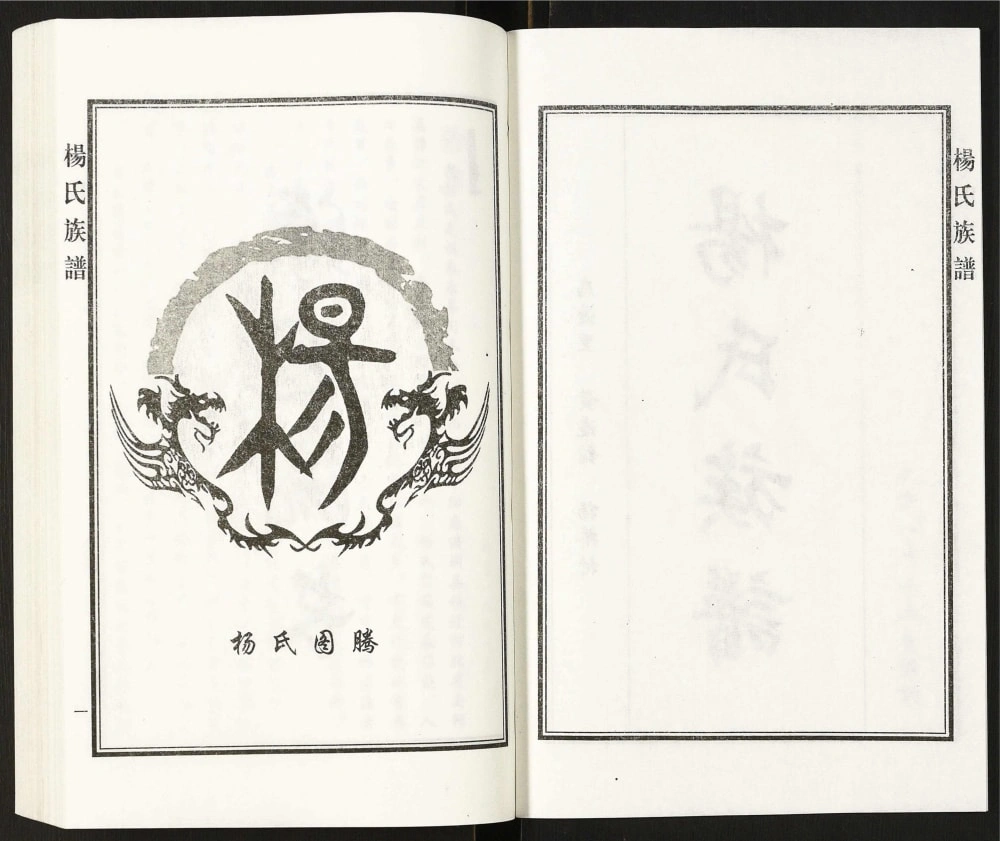 楊氏族譜
楊氏族譜
杨
杨氏图腾
一